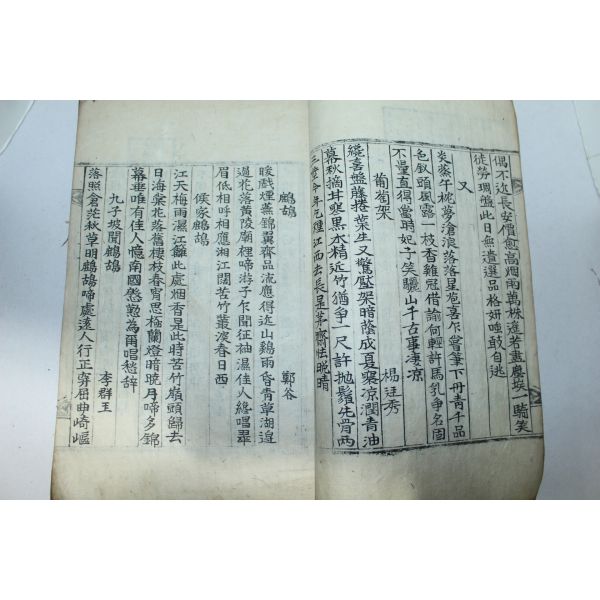 偶不近長安價愈高烟雨萬株逢若盡塵埃一騎笑
徒勞瑚盤此日無遺選品格妍媸鼓自逃
又
炎蒸午枕夢滄浪落落星苞喜乍嘗筆下丹青千品
色釵頭風露一枝香雞冠借諭何輕許馬乳爭名固
不量直得當時妃子笑驪山千古事凄涼
葡萄架
楊廷秀
纔喜盤藤捲葉生又驚壓架暗蔭成夏褰涼潤青油
幕秋摘甘寒黑水精近竹猶爭一尺許抛鬚先胃兩
三莖今年允種江西去長是茅齋怯晚晴
鷓鴣
鄭谷
暖戲煙蕪錦翼齊品流應得近山雞雨昏青草湖邊
過花落黃陵廟裡啼游子乍聞征袖濕佳人纔唱翠
眉低相呼相應湘江闊苦竹叢深春日西
侯家鷓鴣
江天梅雨濕江蘺此處烟香是此時苦竹嶺頭歸去
日海棠花落舊棲枝春宵思極蘭燈暗曉月啼多錦
幕垂唯有佳人憶南國慇懃為爾唱愁辭
九子坡聞鷓鴣
李群玉
落照蒼茫秋草明鷓鴣啼處遠人行正穿屈曲崎嶇